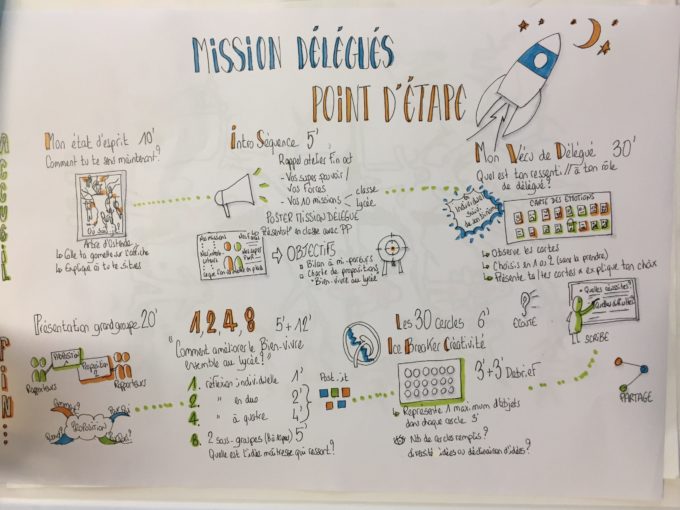 MISSION DÉLÉGUÉS
POINT D'ÉTAPE
ACCUEIL
Mon état d'esprit 10'
Comment tu te sens maintenant?
Où suis-je?
Arbre d'Ostende
Colle ta gomette sur l'affiche
Explique là où tu te situes
Intro Séquence 5'
Rappel atelier fin oct
- Vos super pouvoir /
Vos Forces
- Vos 10 missions
classe
lycée
POSTER MISSION DÉLÉGUÉ
Présentat° en classe avec PP
Mes missions
OBJECTIFS
Bilan à mi-parcours
Charte de propositions
"Bien-vivre au lycée"
Mon Vécu de Délégué 30'
Quel est ton ressenti // à ton rôle
de délégué?
Individuel
suivi
de son binôme
CARTE DES ÉMOTIONS
Observe les cartes
Choisis en 1 ou 2 (sans la prendre)
Présente ta/tes cartes & explique ton choix
ÉCOUTE
- Quelles réussites?
SCRIBE
PARTAGE
Les 30 cercles 6'
Ice Breaker Créativité
3'+3' Debrief
Représente 1 maximum d'objets
dans chaque cercle 3'
Nb de cercles remplis?
diversité idées ou déclinaison d'idées?
1, 2, 4, 8 5'+12'
"Comment améliorer le Bien-vivre
ensemble au lycée?"
1. réflexion individuelle 1'
2. " en duo 2'
4. " à quatre 4'
8. 2 sous-groupes 5'
Quelle est l'idée maîtresse qui ressort?
Post-it
Présentation grand groupe 20'
Proposition
Proposition
Rapporteurs
Rapporteurs
PROPOSITION
FIN...